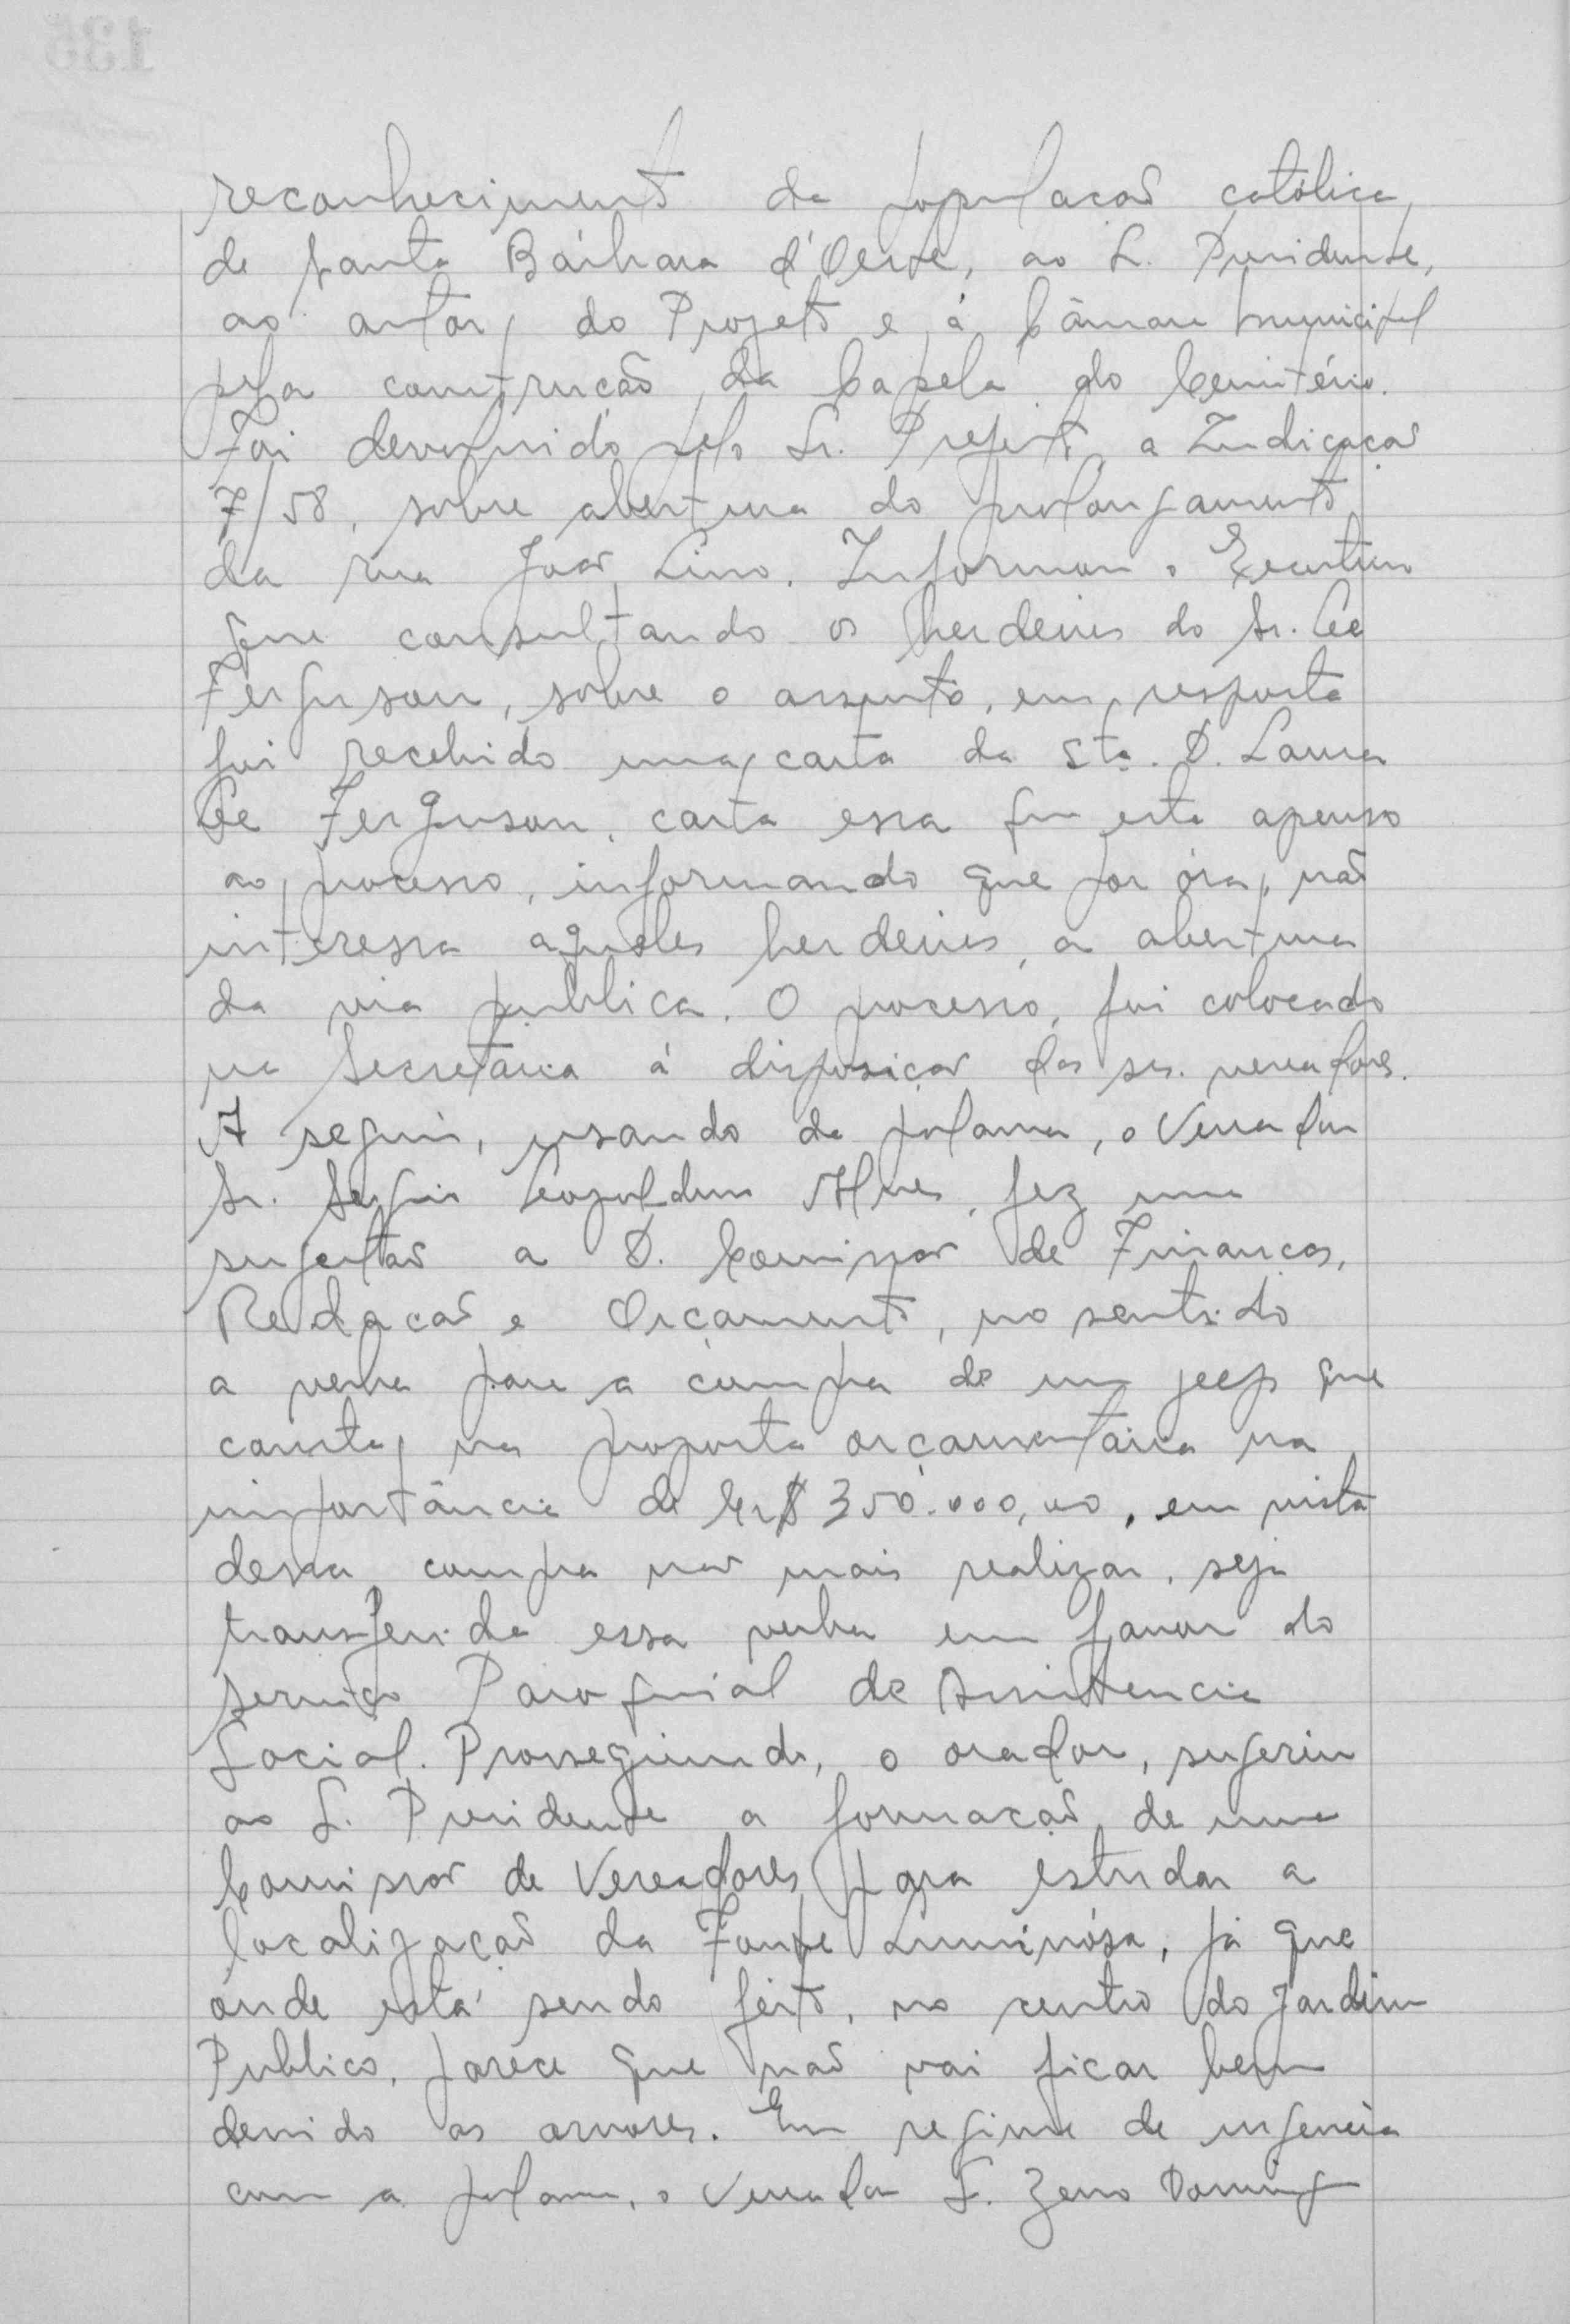 reconhecimento da população católica
de Santa Bárbara d'Oeste, ao Sr. Presidente,
ao autor do Projeto e á Câmara Municipal
pela construcão da Capela do Cemitério.
Foi devolvido pelo Sr. Prefeito a Indicação
7/58, sobre abertura do prolongamento
da rua João Lino. Informou o Executivo
que consultando os herdeiros do Sr. Cee
Ferguson, sobre o assunto, em resposta
foi recebido uma carta da Sta. D. Laura
Cee Ferguson, carta essa que esta apenso
ao processo, informando que por óra, não
interessa aqueles herdeiros, a abertura
da via publica. O processo, foi colocado
na Secretária á disposição dos srs. vereadores.
A seguir, usando da palavra, o Vereador
Sr. Sergio Leopoldino Alves, fez uma
sugestão a D. Comissão de Finanças,
Redacão e Orçamento, no sentido
a verba para a compra de um jeep que
consta, na proposta orçamentária na
importância de Cr$ 350.000,00, em vista
dessa compra não mais realizar, seja
transferida essa verba em favor do
serviço Paroquial de Assistencia
Social. Prosseguindo, o orador, sugeriu
ao Sr. Presidente a formacão de uma
Comissão de Vereadores para estudar a
localização da Fonte Luminósa, já que
onde está sendo feito, no centro do Jardim
Publico, parece que não vai ficar bem
devido as arvores. Em regime de urgencia
com a palavra, o Vereador Sr. Zeno Doming
135